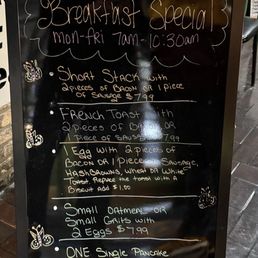 Breakfast Special
mon-fri 7am-10:30am
Short Stack with
2 pieces of Bacon or 1 piece
of Sausage $7.99
French Toast with
2 pieces of Bacon or
1 piece of Sausage $7.99
1 Egg with 2 pieces of
Bacon or 1 piece Sausage,
Hashbrowns, Wheat or White
Toast Replace the toast with a
Biscuit Add $1.00
Small Oatmeal or
Small Grits with
2 Eggs $7.99
One Single Pancake